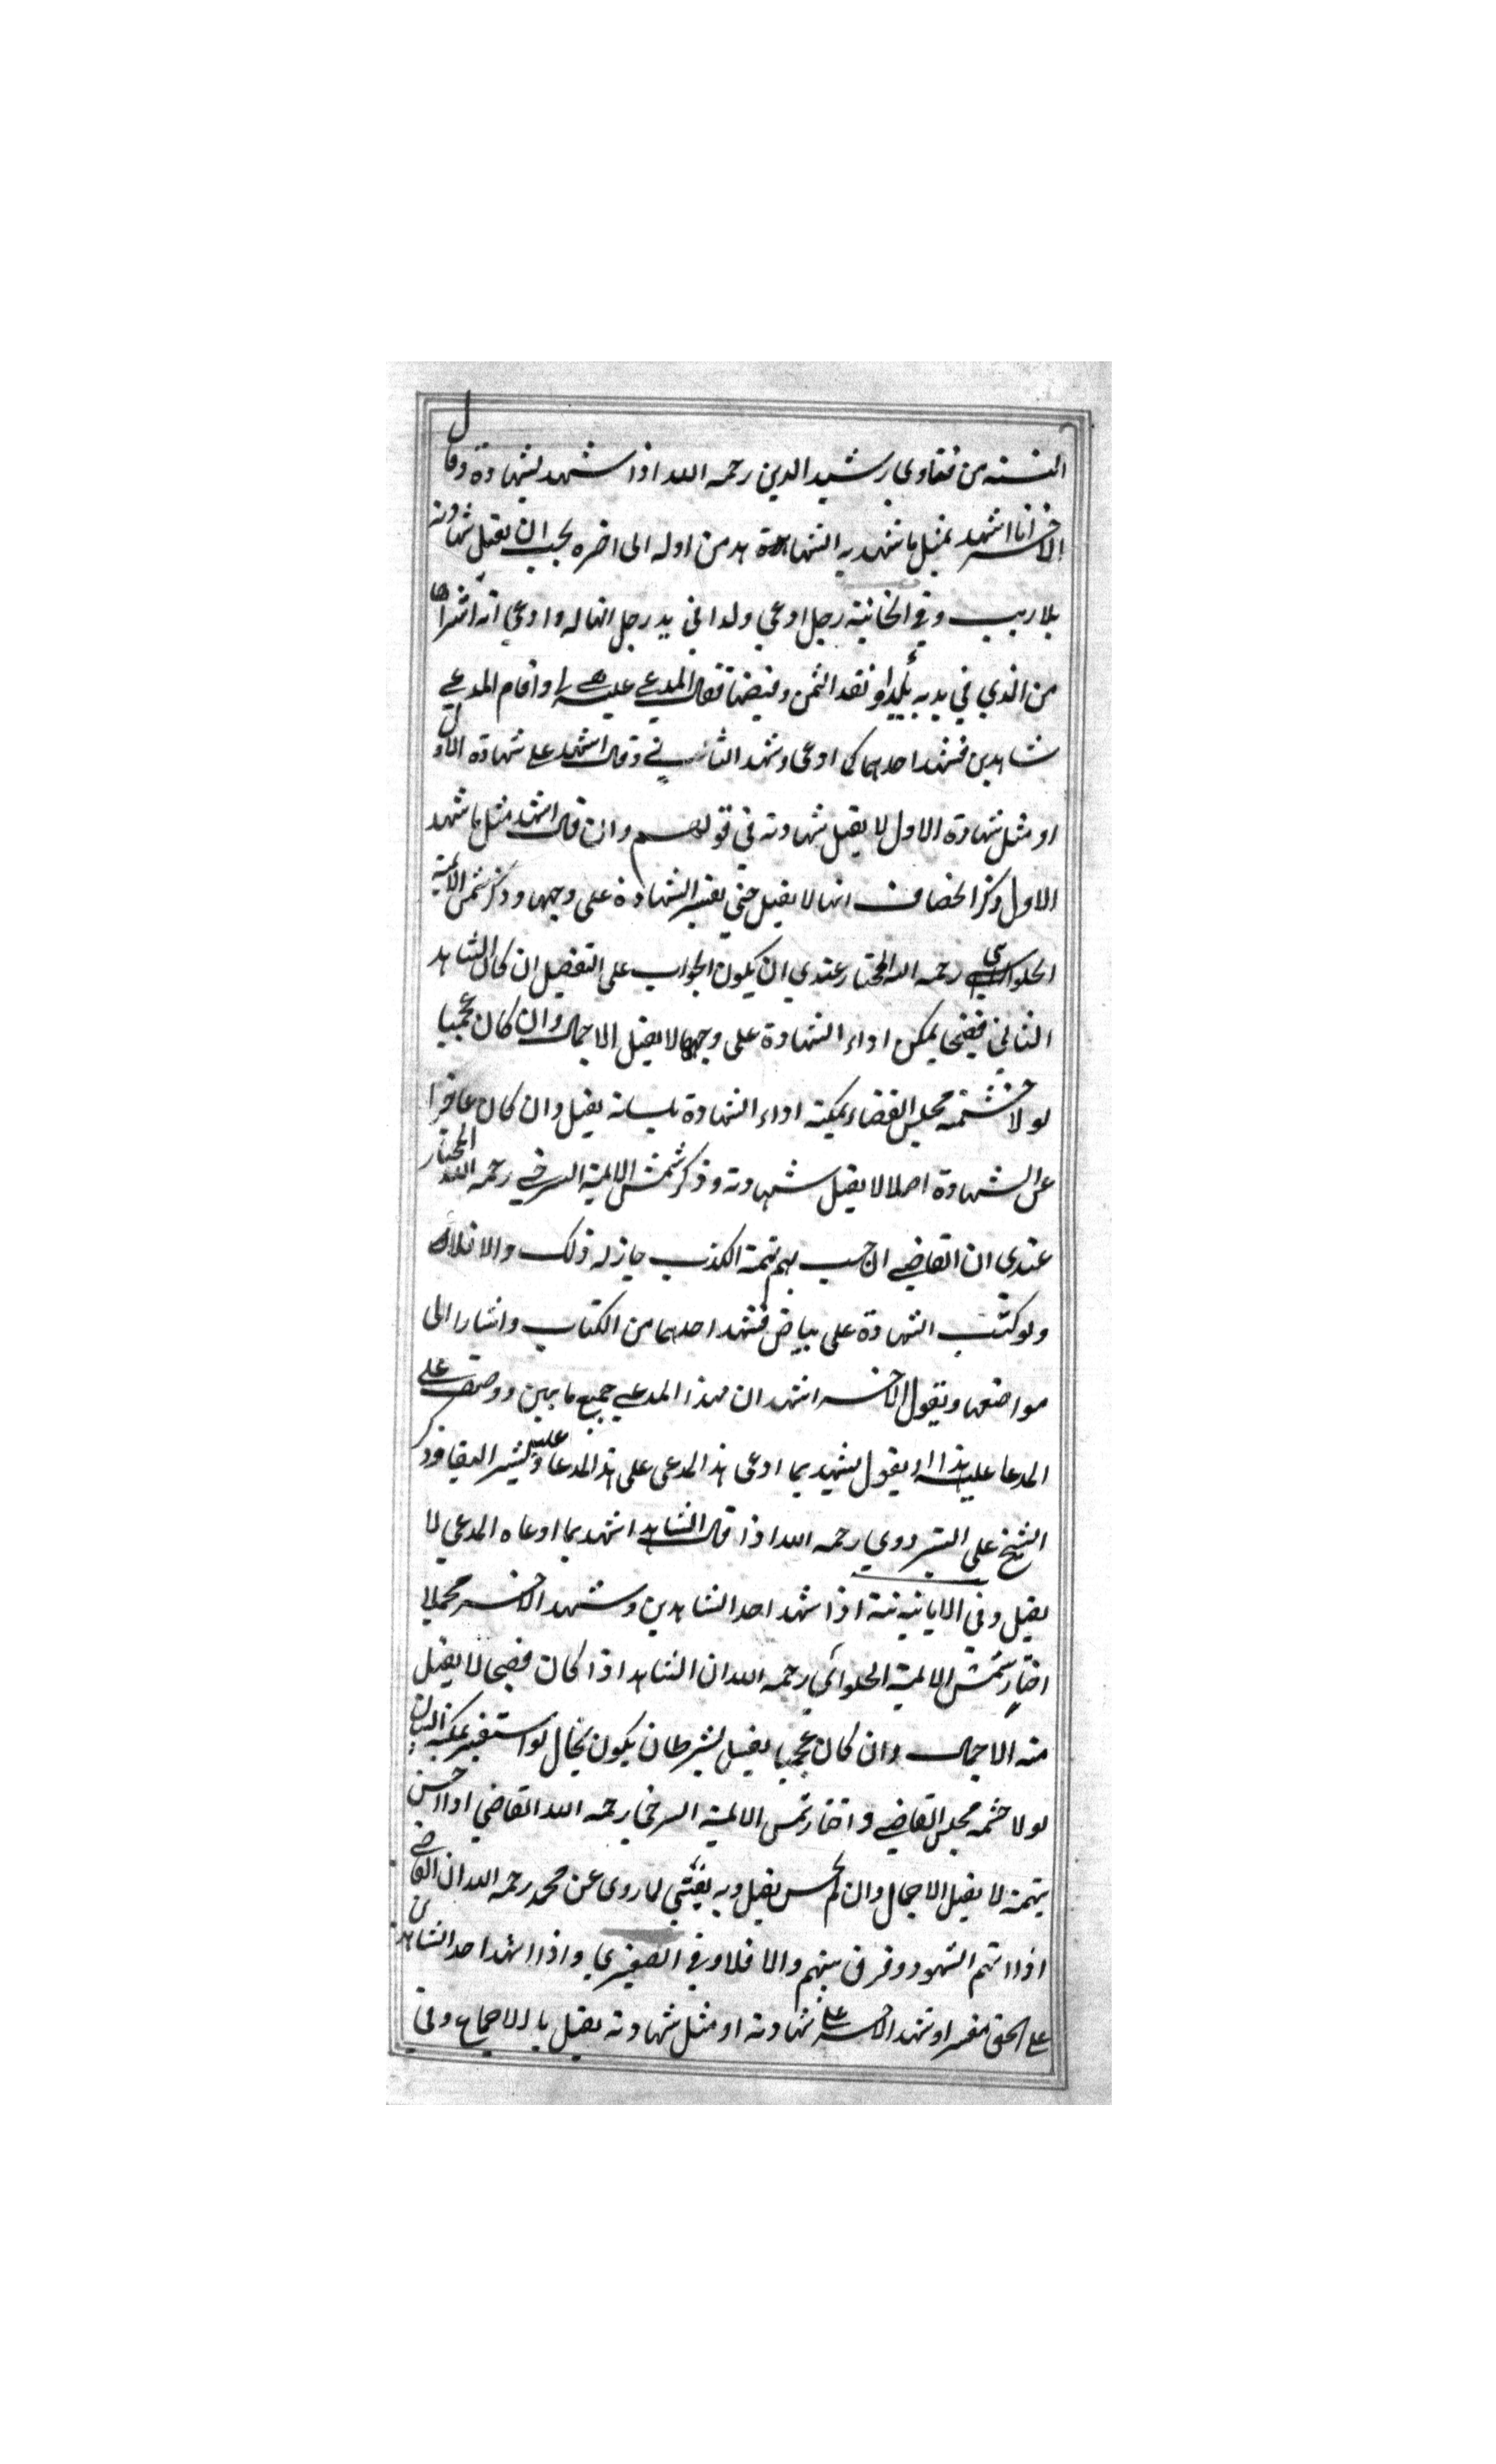 من فتاوى رشيد الدين رحمه الله اذا شهد بشهادة وقال
الاخر انا اشهد بمثل ما شهد به الشاهد من اوله الى اخره يجب ان يقبل شهادته
بلا ريب وفي الخانية رجل ادعى ولدا في يد رجل انها له وادعى انه اشتراها
من الذي في يديه ونقد الثمن وقبضها فقال المدعي عليه واقام المدعي
شاهدين فشهد احدهما كما ادعى وشهد الثاني وقال اشهد على شهادة الاول
او مثل شهادة الاول لا يقبل شهادته في قولهم وان قال اشهد مثل ما شهد
الاول ذكر الخصاف انها لا يقبل حتى يفسر الشهادة على وجهها وذكر شمس الائمة
الحلواني رحمه الله المختار عندي ان يكون الجواب على التفصيل ان كان الشاهد
الثاني فصيحا يمكن اداء الشهادة على وجهها لا يقبل الاجمال وان كان عجميا
لو لا حشمته مجلس القضاء يمكنه اداء الشهادة بلسانه يقبل وان كان عاجزا
عن الشهادة اصلا لا يقبل شهادته وذكر شمس الائمة السرخسي رحمه الله المختار
عندي ان القاضي ان حسب بهم تهمة الكذب جاز له ذلك والا فلا
ولو كتب الشهادة على بياض فشهد احدهما من الكتاب واشار الى
مواضعها ويقول الاخر اشهد ان لهذا المدعي جميع ما بين ووصف على
المدعا عليه هذا او يقول يشهد بما ادعى هذا المدعى على هذا المدعا عليه ويشير ايضا وذكر
الشيخ على البزدوي رحمه الله اذا قال الشاهد اشهد بما ادعاه المدعي لا
يقبل وفي اذا شهد احد الشاهدين وشهد الاخر مجملا
اختار شمس الائمة الحلوائي رحمه الله ان الشاهد اذا كان فصيحا لا يقبل
منه الاجمال وان كان عجميا يقبل بشرط ان يكون بحال لو استفسر يمكنه البيان
لو لا حشمه مجلس القاضي واختار شمس الائمة السرخسي رحمه الله القاضي اذا احس
بتهمة لا يقبل الاجمال وان لم يحس يقبل وبه يفتي لما روى عن محمد رحمه الله ان القاضي
اذا اتهم الشهود وفرق بينهم والا فلا وفي الصغرى واذا شهد احد الشاهدين
على الحق مفسرا وشهد الاخر على شهادته او مثل شهادته يقبل بالاجماع وفي